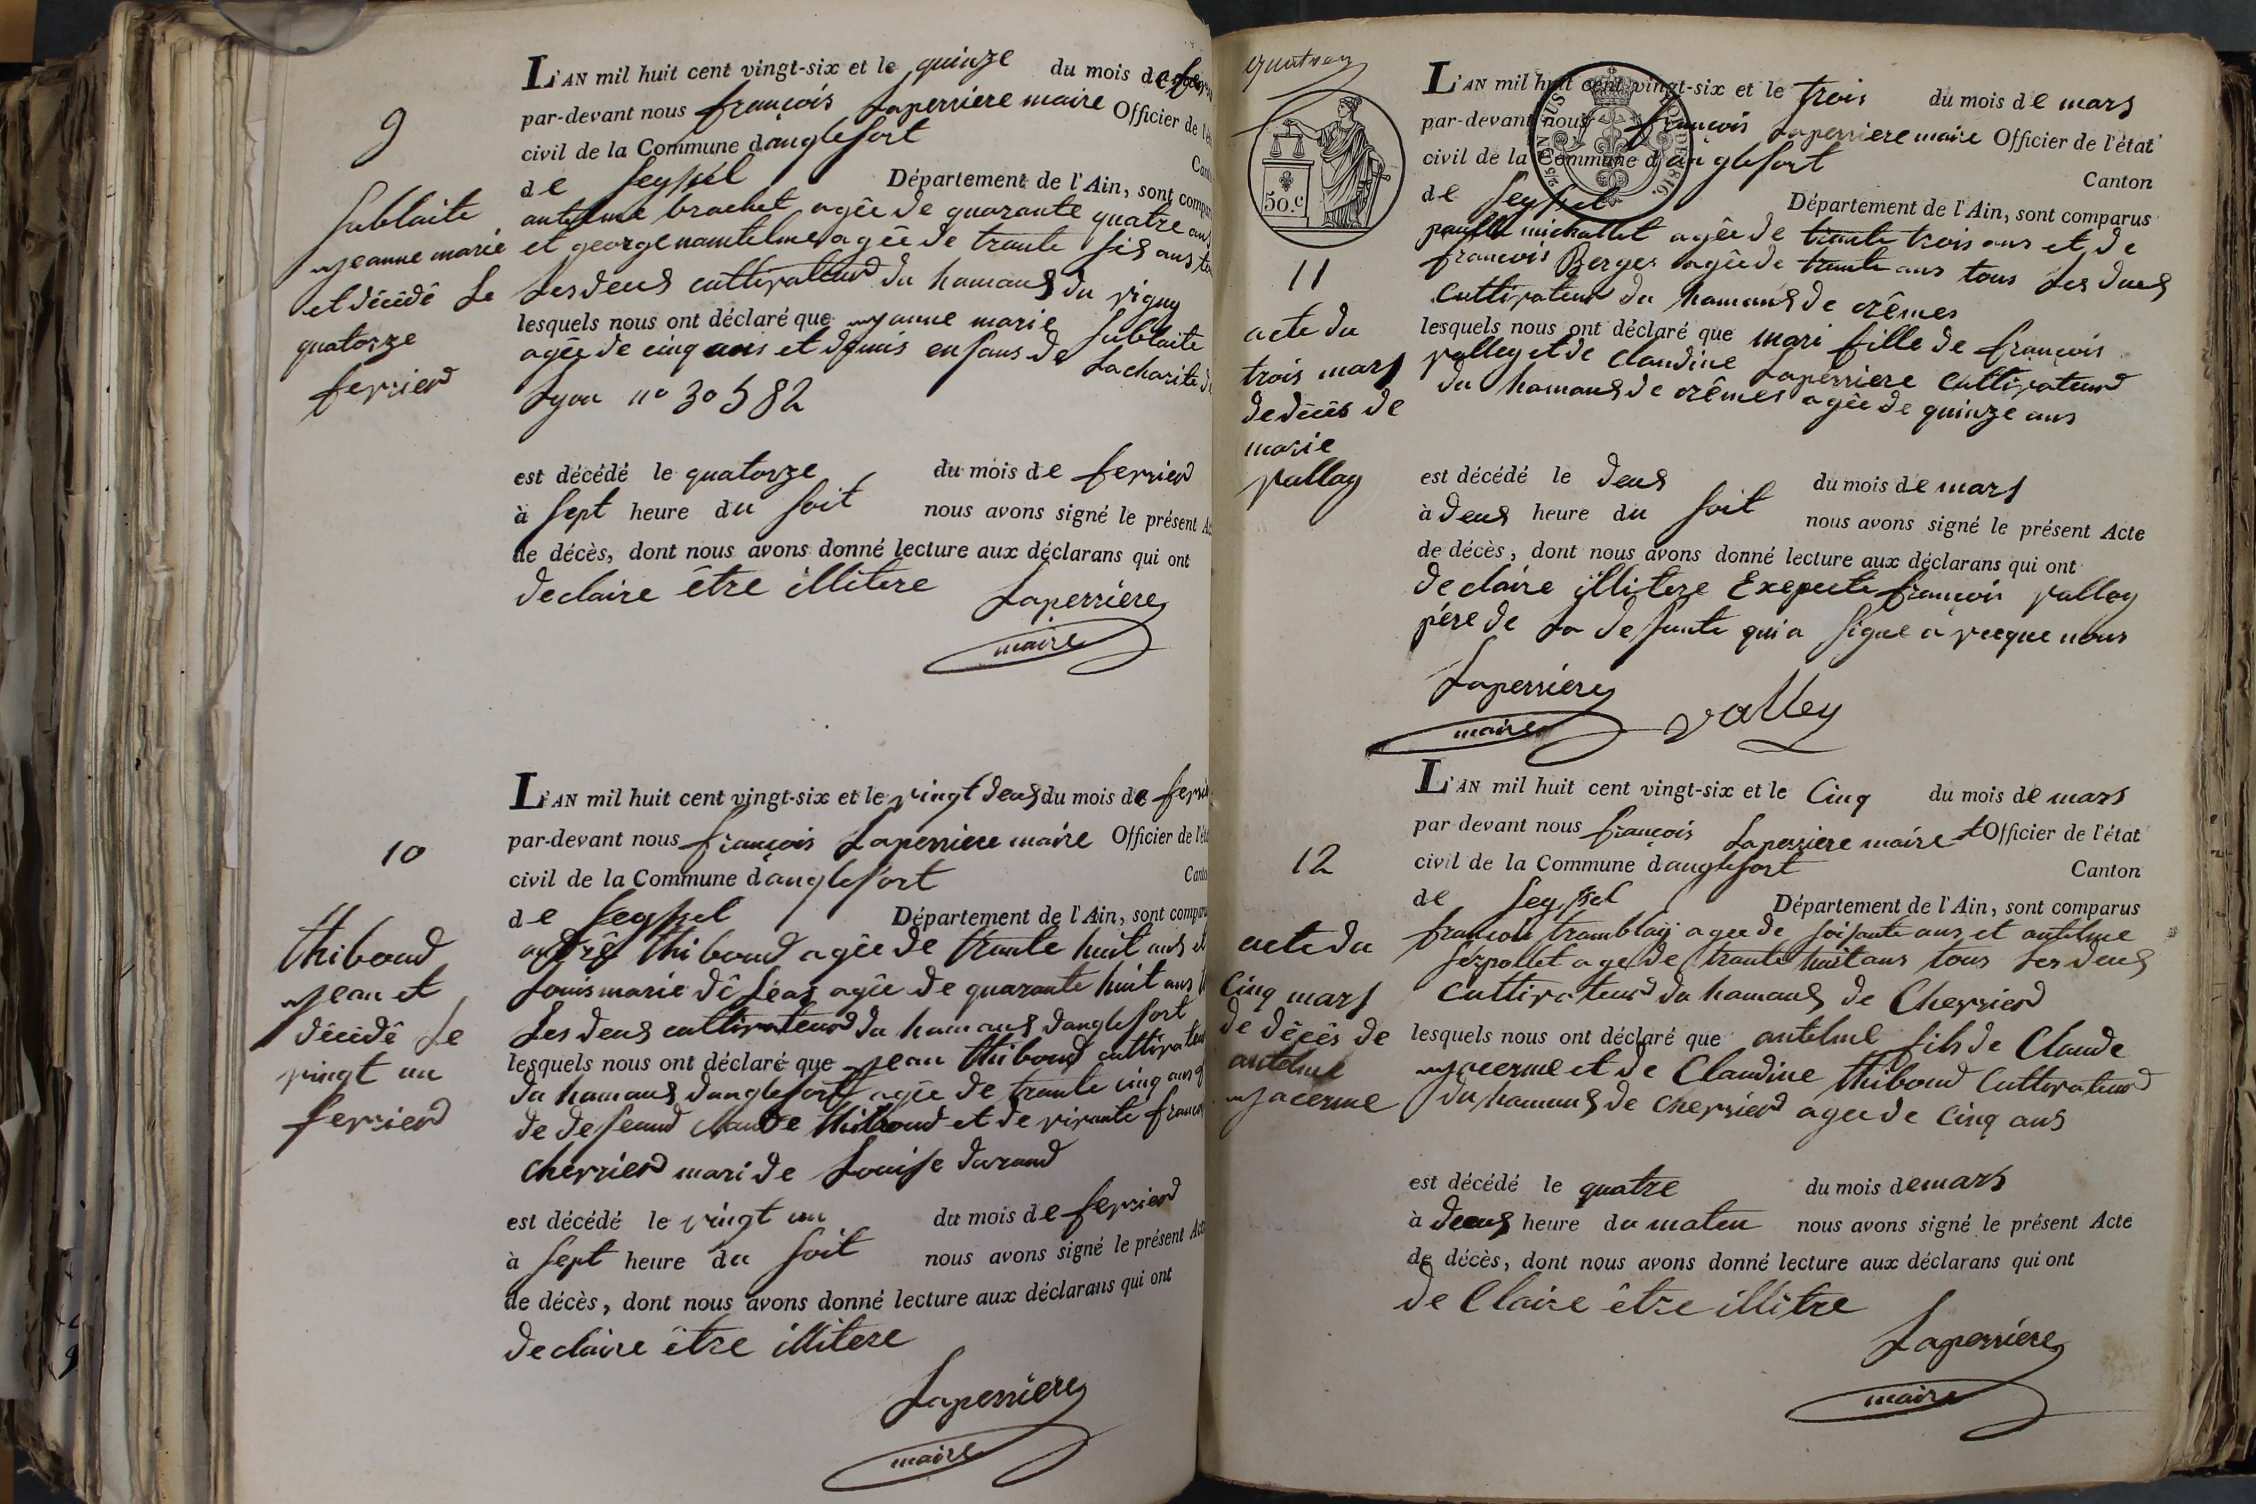 9
L'AN mil huit cent vingt-six et le quinze du mois de
par-devant nous françois Laperriere maire Officier de l'é
civil de la Commune d'anglefort
Cant
de Seyssel Département de l'Ain, sont compar
antelme brachet agêe de quarante quatre ans
et george nantelme agêe de trante sis ans
Les deus cultivateurs du hamaus du vigny
lesquels nous ont déclaré que jeanne marie Sublaite
agêe de cinq ans et demis enfans de La charite de
Lyon n° 30582
est décédé le quatorze du mois de fevrier
à sept heure du soit nous avons signé le présent Ac
de décès, dont nous avons donné lecture aux déclarans qui ont
declaire être illitere
Laperriere
maire
Sublaite
jeanne marie
et dêcêdê Le
quatorze
fevrier
10
L'AN mil huit cent vingt-six et le vingt deus du mois de fevrie
par-devant nous françois Laperriere maire Officier de l'éta
civil de la Commune d'anglefort
Canto
de Seyssel Département de l'Ain, sont comparu
andrê thiboud agêe de trante huit ans et
Louis marie dê Lêaz agêe de quarante huit ans
Les deus cultivateurs du hamaus danglefort
lesquels nous ont déclaré que jean thiboud cultivateur
du hamaus danglefort agêe de trante cinq ans
de defeund claude thiboud et de vivante franco
chevrier mari de Louise durand
est décédé le vingt un du mois de fevrier
à sept heure du soit nous avons signé le présent Act
de décès, dont nous avons donné lecture aux déclarans qui ont
declaire être illitere
Laperriere
maire
thiboud
jean et
dêcêdê Le
vingt un
fevrier
50.c
11
L'AN mil huit cent vingt-six et le trois du mois de mars
par-devant nous françois Laperriere maire Officier de l'état
civil de la Commune d'anglefort
Canton
de Seyssel Département de l'Ain, sont comparus
michallet agêe de trante trois ans et de
francois Berger agêe de trante ans tous Les deus
cultivateur du hamaus de crêmes
lesquels nous ont déclaré que mari fille de françois
valley et de claudine Laperriere cultivateurs
du hamaus de crêmes agêe de quinze ans
est décédé le deus du mois de mars
à deus heure du soit nous avons signé le présent Acte
de décès, dont nous avons donné lecture aux déclarans qui ont
declaire illitere Exepecte françois valley
père de La defunte qui a signe a vecque nous
Laperriere
maire
valley
acte du
trois mars
de dêcês de
marie
valley
12
L'AN mil huit cent vingt-six et le Cinq du mois de mars
par devant nous françois Laperriere maire et Officier de l'état
civil de la Commune d'anglefort
Canton
de Seyssel Département de l'Ain, sont comparus
françois tramblay agee de soisante ans et antelme
serpollet age de trante huit ans tous Les deus
cultivateurs du hamaus de Chevrier
lesquels nous ont déclaré que antelme fils de Claude
jacerme et de Claudine thiboud cultivateurs
du hamaus de chevrier agee de cinq ans
est décédé le quatre du mois de mars
à deus heure du maten nous avons signé le présent Acte
de décès, dont nous avons donné lecture aux déclarans qui ont
de Claire être illitre
Laperriere
maire
acte du
Cinq mars
de dêcês de
antelme
jacerme